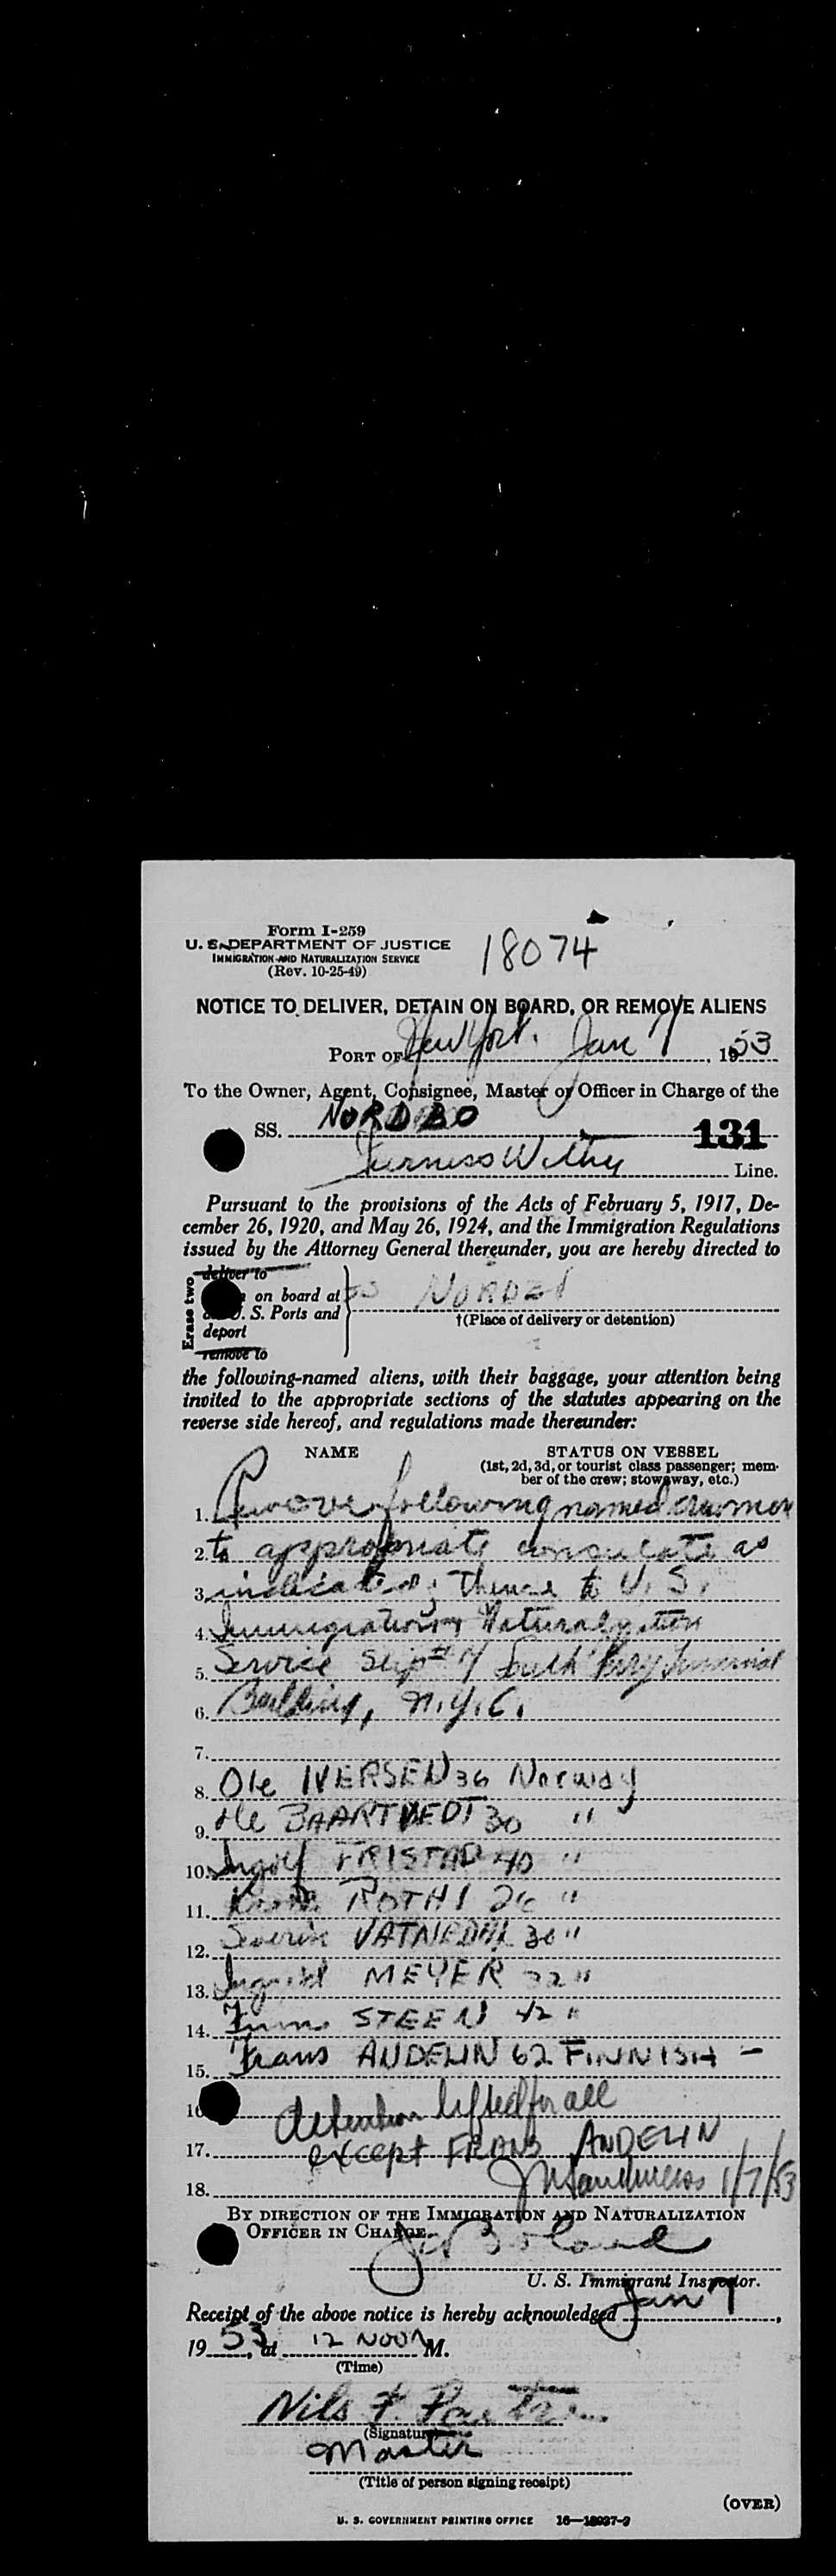 Form I-259
U. S. DEPARTMENT OF JUSTICE
IMMIGRATION AND NATURALIZATION SERVICE
(Rev. 10-25-49)
18074
NOTICE TO DELIVER, DETAIN ON BOARD, OR REMOVE ALIENS
PORT OF New York, Jan 7, 1953
To the Owner, Agent, Consignee, Master or Officer in Charge of the
SS. NORDBO
131
Furness Withy Line.
Pursuant to the provisions of the Acts of February 5, 1917, De-
cember 26, 1920, and May 26, 1924, and the Immigration Regulations
issued by the Attorney General thereunder, you are hereby directed to
Erase two
deliver to
on board at
U. S. Ports and
deport
remove to
†(Place of delivery or detention)
the following-named aliens, with their baggage, your attention being
invited to the appropriate sections of the statutes appearing on the
reverse side hereof, and regulations made thereunder:
NAME
STATUS ON VESSEL
(1st, 2d, 3d, or tourist class passenger; mem-
ber of the crew; stowaway, etc.)
1. Remove following named crewmen
2. to appropriate consulate as
3. indicated; thence to U. S.
4. Immigration & Naturalization
5. Service Slip # 7 South Ferry Terminal
6. Building, N.Y.C.
7.
8. Ole IVERSEN 36 Norway
9. BAARTVEDT 30 "
10. FRISTAD 40 "
11. ROTHI 26 "
12. Severin VATNEDAL 30 "
13. MEYER "
14. STEEN 42 "
15. Frans ANDELIN 62 FINNISH -
16. detention lifted for all
17. except FRANS ANDELIN
18. 1/7/53
BY DIRECTION OF THE IMMIGRATION AND NATURALIZATION
OFFICER IN CHARGE.
Boland
U. S. Immigrant Inspector.
Receipt of the above notice is hereby acknowledged Jan 7,
1953, at 12 NOON M.
(Time)
Nils F.
(Signature)
Master
(Title of person signing receipt)
(OVER)
U. S. GOVERNMENT PRINTING OFFICE 16—18037-2